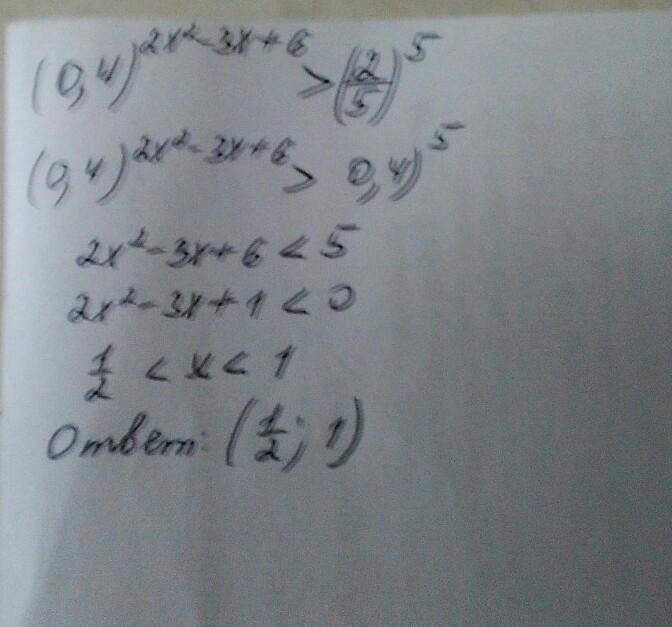 (0,4)^{2x²-3x+6} > (2/5)^5
(0,4)^{2x²-3x+6} > 0,4)^5
2x²-3x+6 < 5
2x²-3x+1 < 0
1/2 < x < 1
Ответ: (1/2; 1)